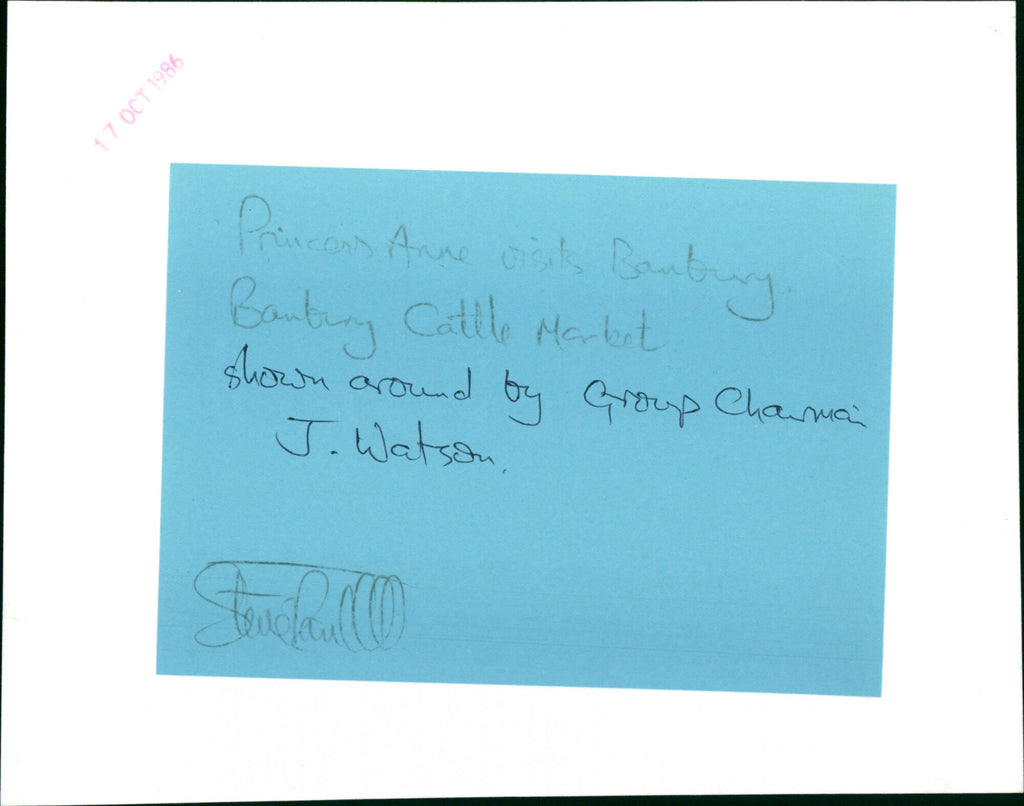 17 OCT 1986
Princess Anne visits Banbury.
Banbury Cattle Market.
shown around by Group Chairman
J. Watson.